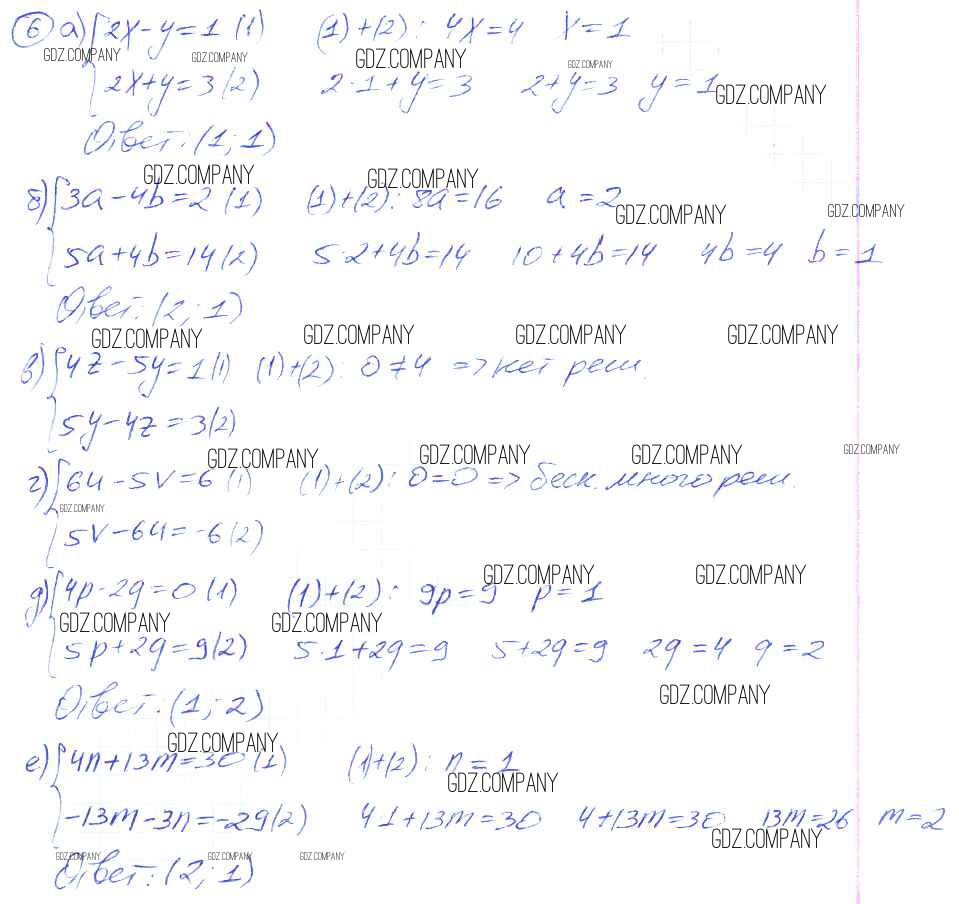 6 а) { 2x-y=1 (1) (1)+(2): 4x=4 x=1
GDZ.COMPANY GDZ.COMPANY GDZ.COMPANY GDZ.COMPANY
2x+y=3 (2) 2·1+y=3 2+y=3 y=1
GDZ.COMPANY
Ответ: (1; 1)
GDZ.COMPANY GDZ.COMPANY
б) { 3a-4b=2 (1) (1)+(2): 8a=16 a=2
GDZ.COMPANY GDZ.COMPANY
5a+4b=14 (2) 5·2+4b=14 10+4b=14 4b=4 b=1
Ответ: (2; 1)
GDZ.COMPANY GDZ.COMPANY GDZ.COMPANY GDZ.COMPANY
в) { 4z-5y=1 (1) (1)+(2): 0≠4 => нет реш.
5y-4z=3 (2)
GDZ.COMPANY GDZ.COMPANY GDZ.COMPANY GDZ.COMPANY
г) { 6u-5v=6 (1) (1)+(2): 0=0 => беск. много реш.
GDZ.COMPANY
5v-6u=-6 (2)
GDZ.COMPANY GDZ.COMPANY
д) { 4p-2q=0 (1) (1)+(2): 9p=9 p=1
GDZ.COMPANY GDZ.COMPANY
5p+2q=9 (2) 5·1+2q=9 5+2q=9 2q=4 q=2
GDZ.COMPANY
Ответ: (1; 2)
GDZ.COMPANY
е) { 4n+13m=30 (1) (1)+(2): n=1
GDZ.COMPANY
-13m-3n=-29 (2) 4·1+13m=30 4+13m=30 13m=26 m=2
GDZ.COMPANY
GDZ.COMPANY GDZ.COMPANY GDZ.COMPANY
Ответ: (2; 1)